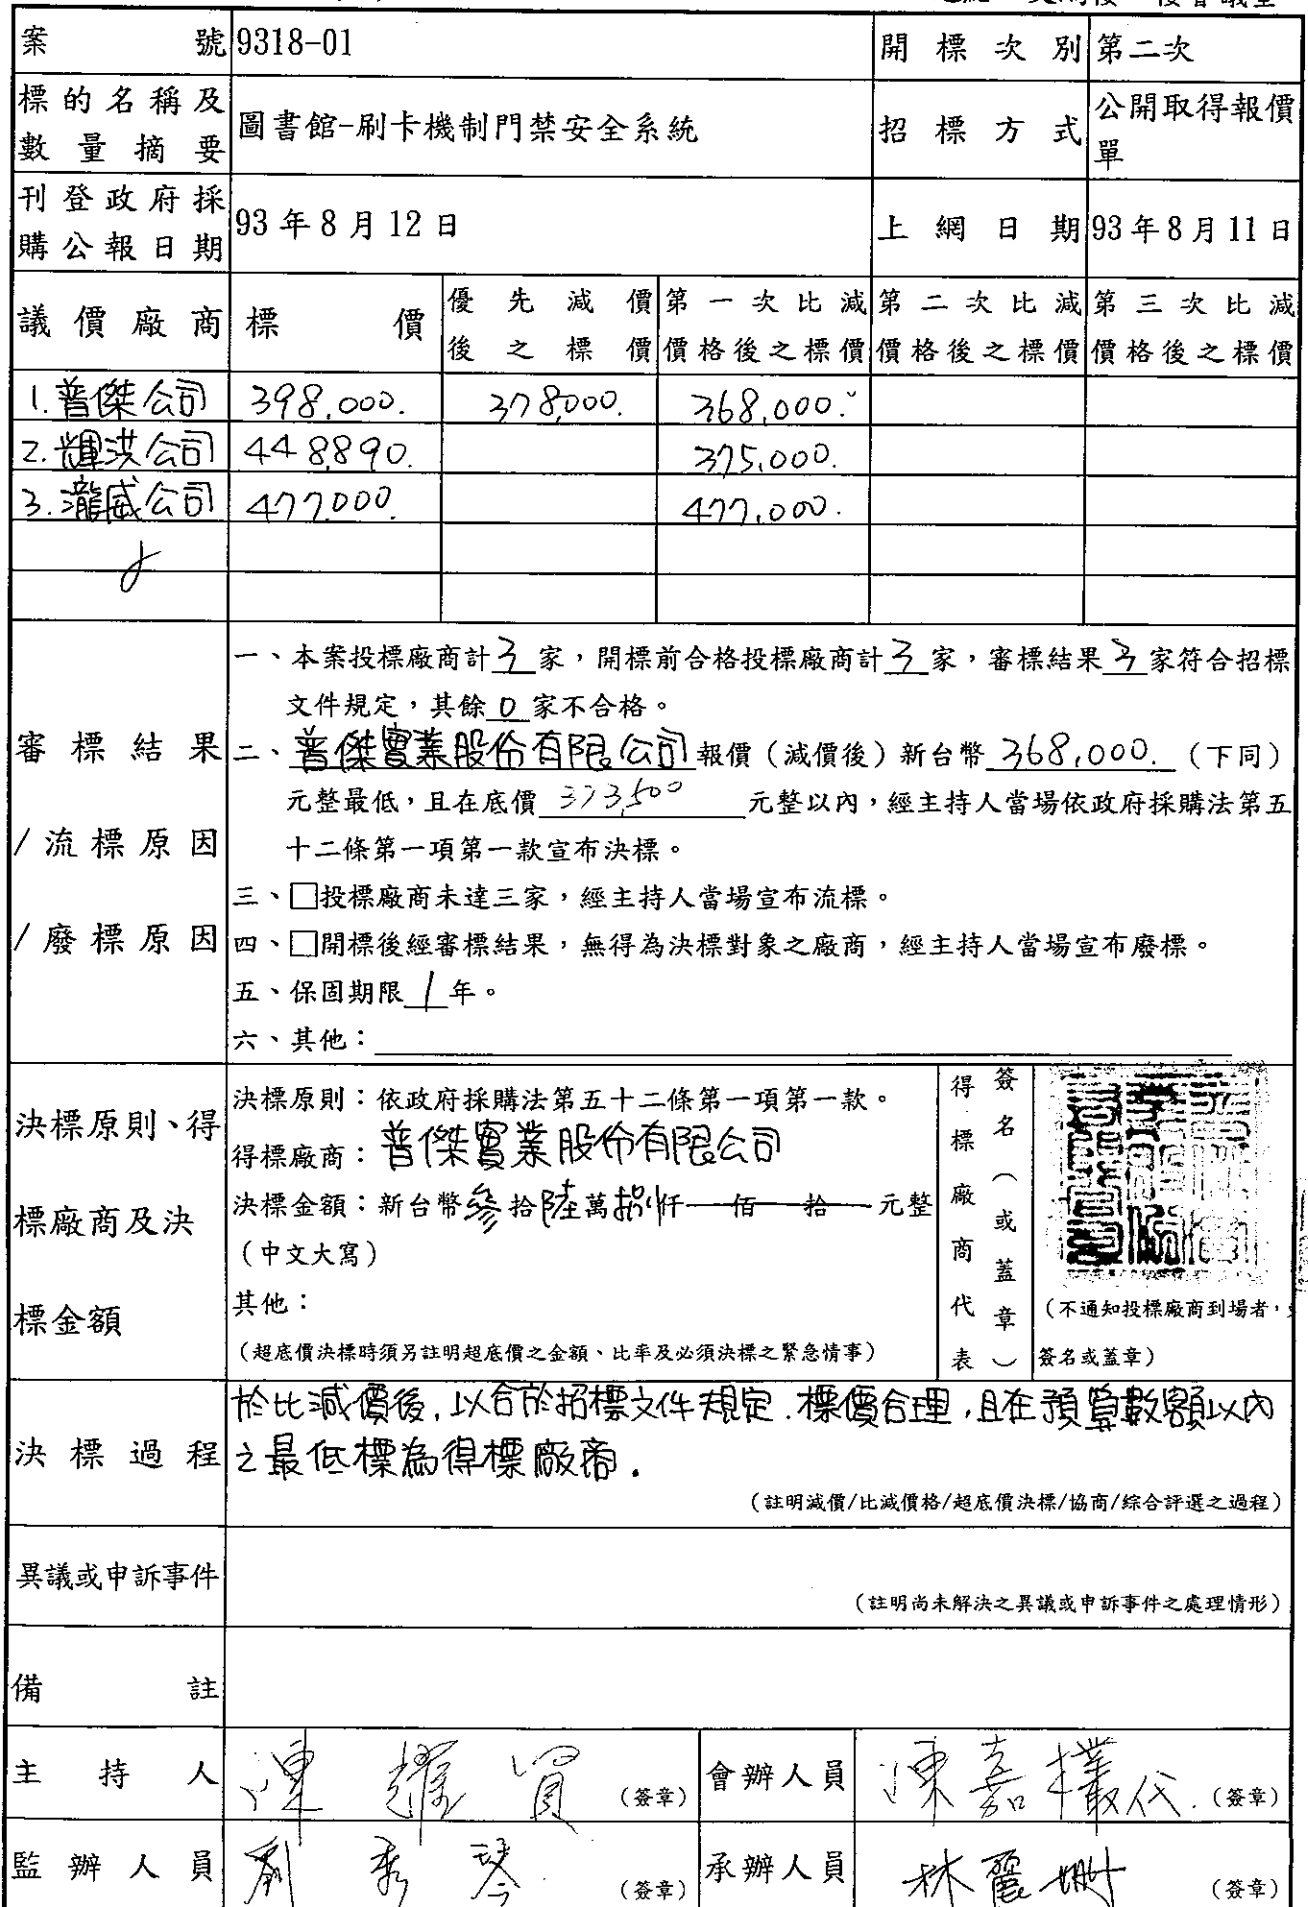 案號 9318-01 開標次別 第二次
標的名稱及數量摘要 圖書館-刷卡機制門禁安全系統 招標方式 公開取得報價單
刊登政府採購公報日期 93年8月12日 上網日期 93年8月11日
議價廠商 標價 優先減價後之標價 第一次比減價格後之標價 第二次比減價格後之標價 第三次比減價格後之標價
1.普傑公司 398,000. 378,000. 368,000.
2.輝洪公司 448,890. 375,000.
3.瀧威公司 477,000. 477,000.
審標結果/流標原因/廢標原因
一、本案投標廠商計3家,開標前合格投標廠商計3家,審標結果3家符合招標
文件規定,其餘0家不合格。
二、普傑實業股份有限公司報價(減價後)新台幣368,000.(下同)
元整最低,且在底價373,500元整以內,經主持人當場依政府採購法第五
十二條第一項第一款宣布決標。
三、□投標廠商未達三家,經主持人當場宣布流標。
四、□開標後經審標結果,無得為決標對象之廠商,經主持人當場宣布廢標。
五、保固期限1年。
六、其他:
決標原則、得標廠商及決標金額
決標原則:依政府採購法第五十二條第一項第一款。
得標廠商:普傑實業股份有限公司
決標金額:新台幣參拾陸萬捌仟佰拾元整
(中文大寫)
其他:
(超底價決標時須另註明超底價之金額、比率及必須決標之緊急情事)
得標廠商代表
簽名(或蓋章)
(不通知投標廠商到場者,
簽名或蓋章)
決標過程
於比減價後,以合於招標文件規定.標價合理,且在預算數額以內
之最低標為得標廠商.
(註明減價/比減價格/超底價決標/協商/綜合評選之過程)
異議或申訴事件
(註明尚未解決之異議或申訴事件之處理情形)
備註
主持人 (簽章) 會辦人員 陳嘉樸代.(簽章)
監辦人員 劉秀琴 (簽章) 承辦人員 林麗珊 (簽章)